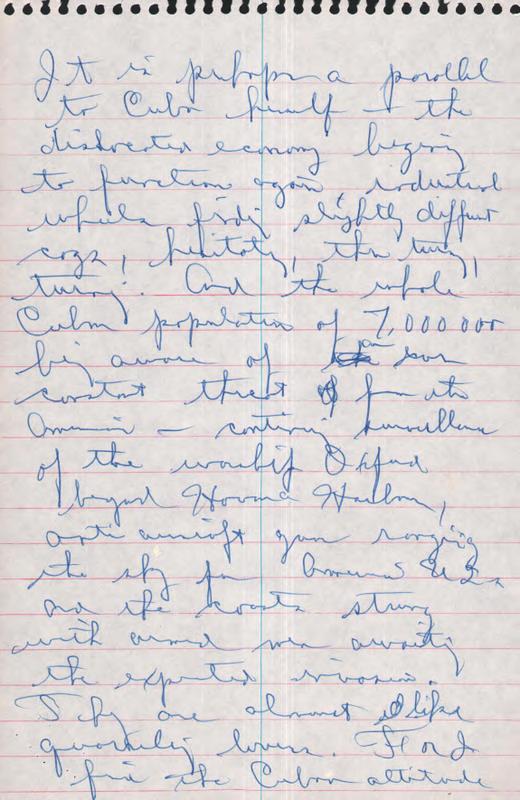 It is perhaps a parallel
to Cuba herself – the
dislocated economy begining
to function again, industrial
wheels finding slightly different
cogs, hesitating, then turning,
turning. And the whole
Cuban population of 7,000 000
being aware of an
constant threat from
America – continuing surveillance
of the warship Oxford
beyond Havana Harbour,
anti aircraft guns ranging
the sky for American U2s
and the coasts strung
with armed men awaiting
the expected invasion.
They are almost like
quarreling lovers. For I
find the Cuban attitude